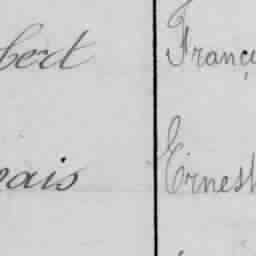 bert Franç
nais Ernest